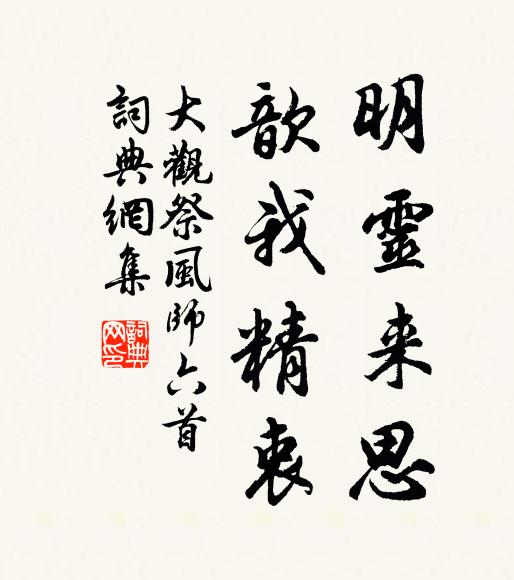 明靈来思
歆我精衷
大觀祭風師六首
詞典網集
詞典网印